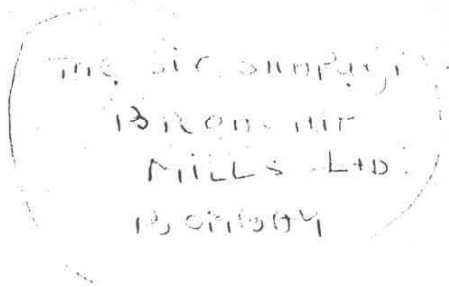 The Sir Shapurji
Broacha
MILLS LTD.
BOMBAY